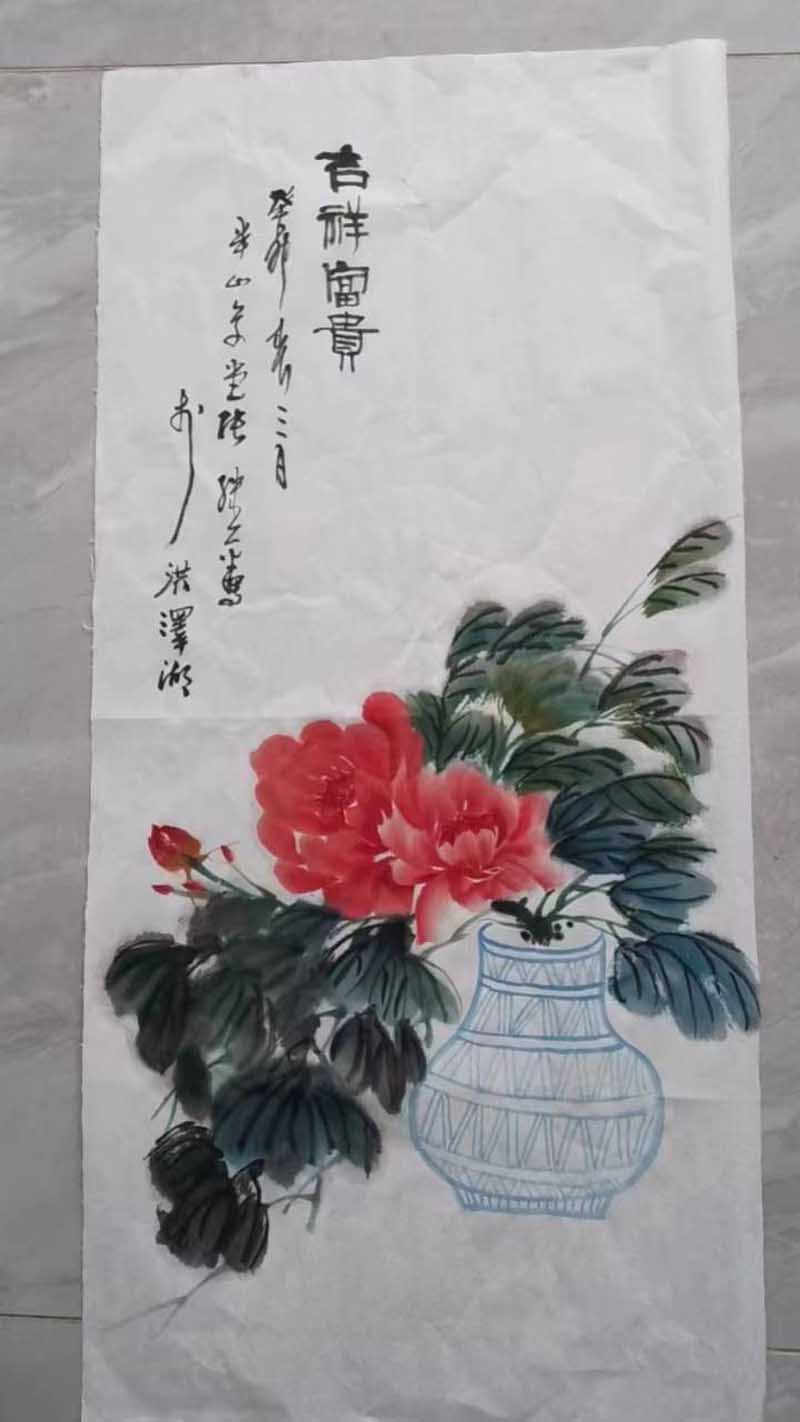 吉祥富貴
癸卯春三月
半山草堂張継云写
於
洪澤湖